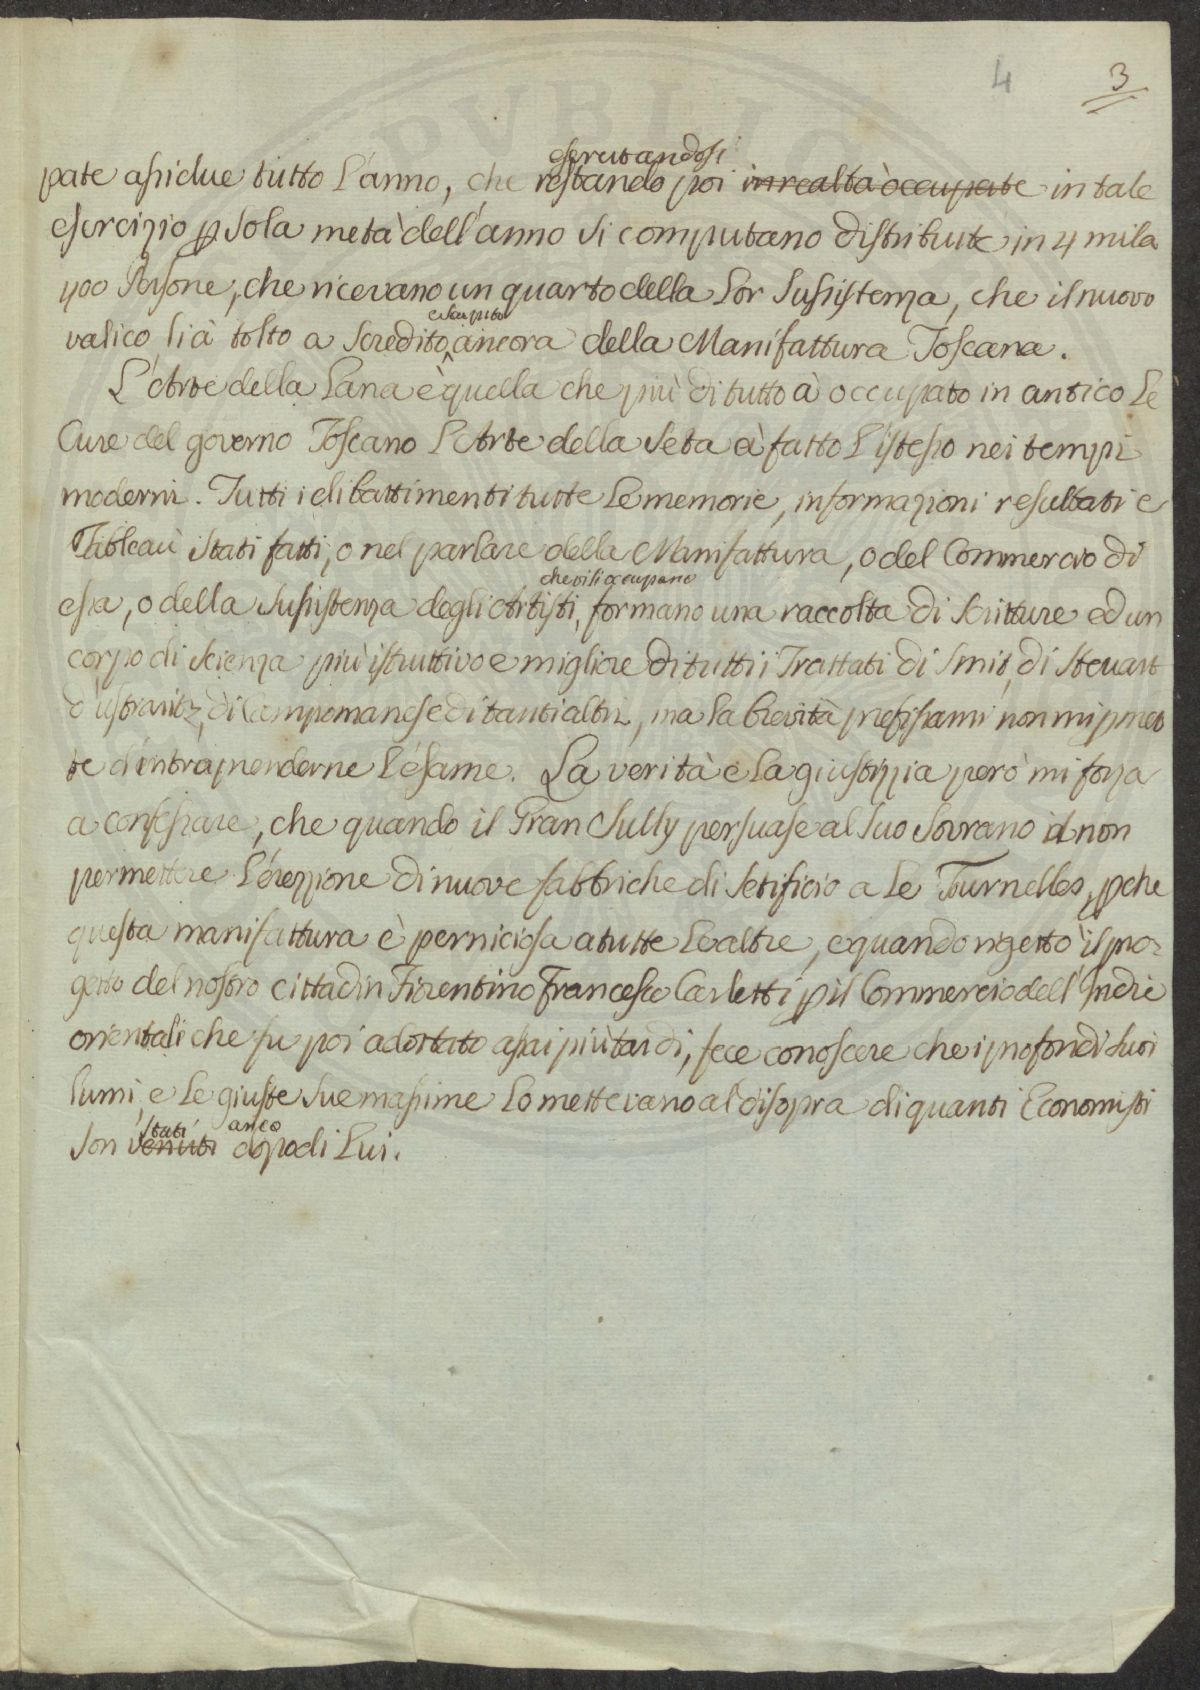 4 3
pate assidue tutto l'anno, che restando esercitandosi poi in realtà occupate in tale
esercizio p sola metà dell'anno si computano distribuite in 4 mila
400 Persone, che ricevano un quarto della lor sussistenza, che il nuovo
valico li à tolto a scredito, ancora della Manifattura Toscana.
L'Arte della Lana è quella che più di tutto à occupato in antico le
Cure del governo Toscano l'Arte della Seta à fatto l'istesso nei tempi
moderni. Tutti i dibattimenti tutte le memorie, informazioni resultati e
Tableau stati fatti, o nel parlare della Manifattura, o del Commercio di
essa, o della sussistenza degli Artisti, che vi si occupano formano una raccolta di scritture ed un
corpo di scienza più istruttivo e migliore di tutti i Trattati di Smit, di Steuart
d'Ustaritz, di Campomanes e di tanti altri, ma la brevità prefissami non mi peret
te d'intraprenderne l'esame. La verità e la giustizia però mi forza
a confessare, che quando il Gran Sully persuase al suo Sovrano il non
permettere l'erezzione di nuove fabbriche di Setificio a le Tournelles, pche
questa manifattura è perniciosa a tutte le altre, e quando rigettò il pro-
getto del nostro cittadin Fiorentino Francesco Carletti p il Commercio dell'Indie
orientali che fu poi adottato assai più tardi, fece conoscere che i profondi suoi
lumi, e le giuste sue massime lo mettevano al disopra di quanti Economisti
son venuti stati anco dopo di Lui.